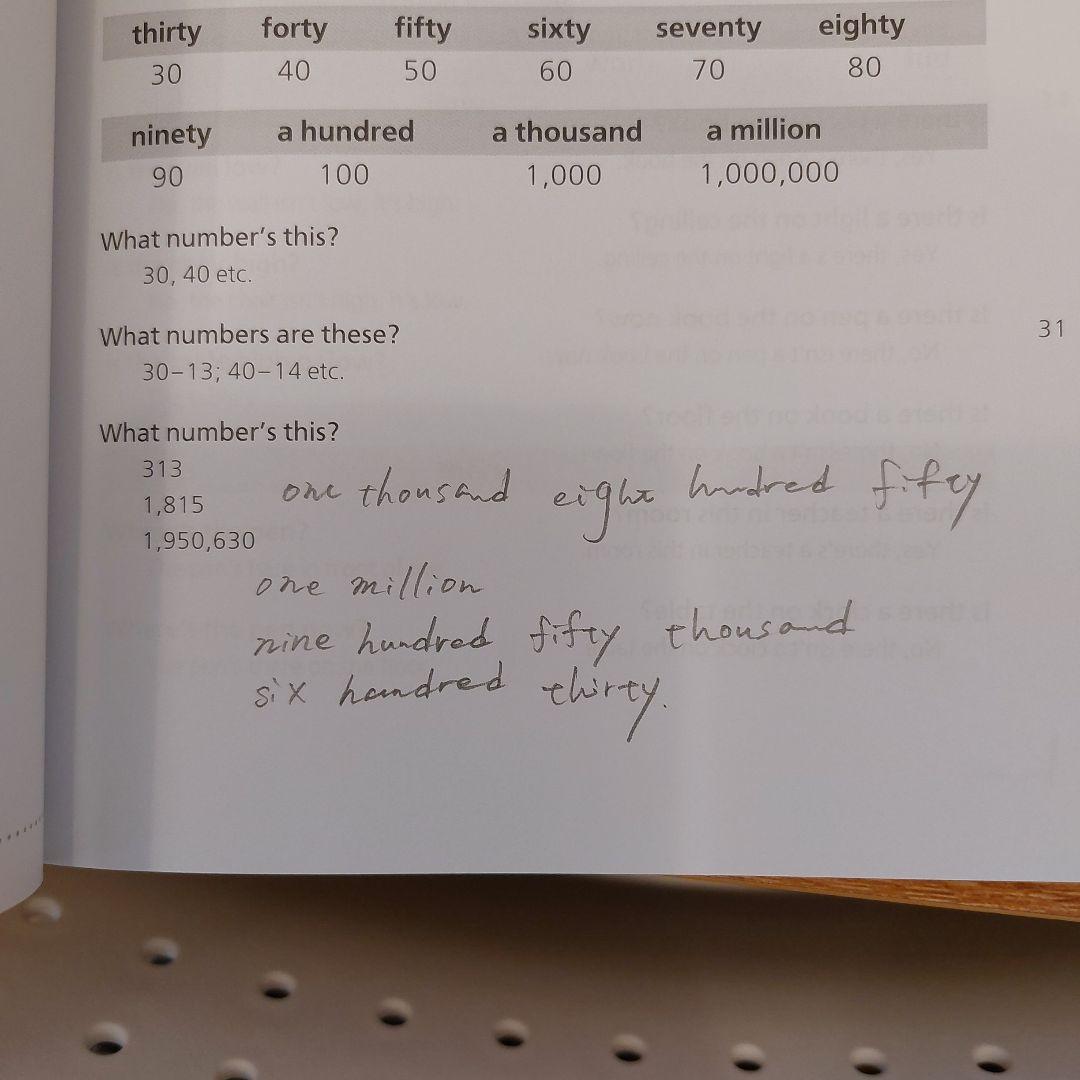 thirty forty fifty sixty seventy eighty
30 40 50 60 70 80
ninety a hundred a thousand a million
90 100 1,000 1,000,000
What number's this?
30, 40 etc.
What numbers are these?
30–13; 40–14 etc.
31
What number's this?
313
1,815 one thousand eight hundred fifty
1,950,630
one million
nine hundred fifty thousand
six hundred thirty.